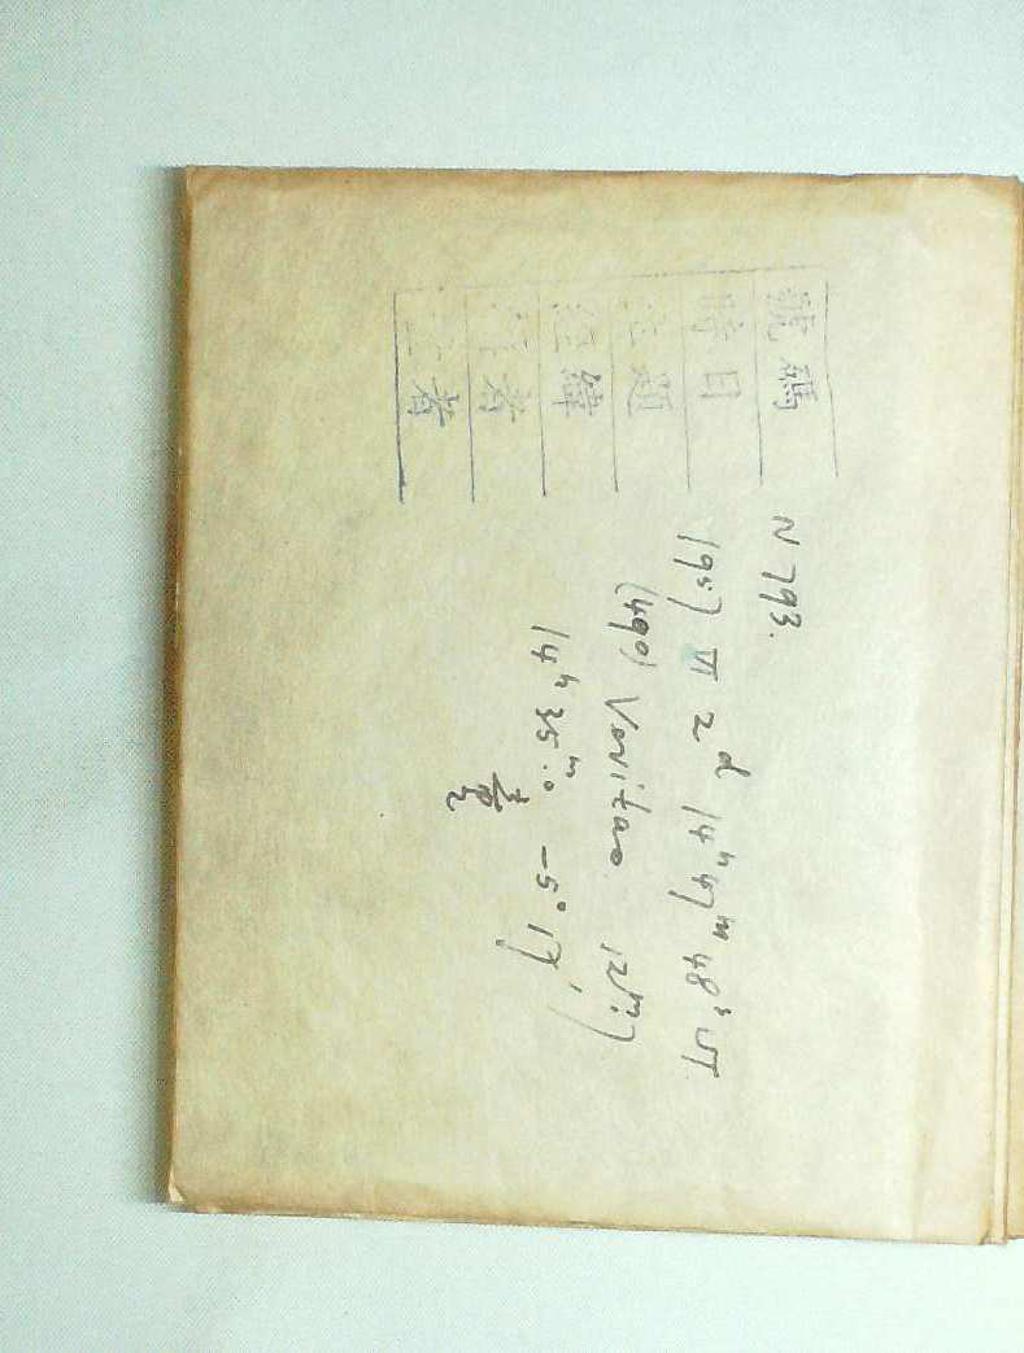 號碼 N 793.
時日 1957 VI 2d 14h 47m 48s UT
題 (490) Veritas 12m.)
經緯 14h 35m.0 -5° 17'
者
者